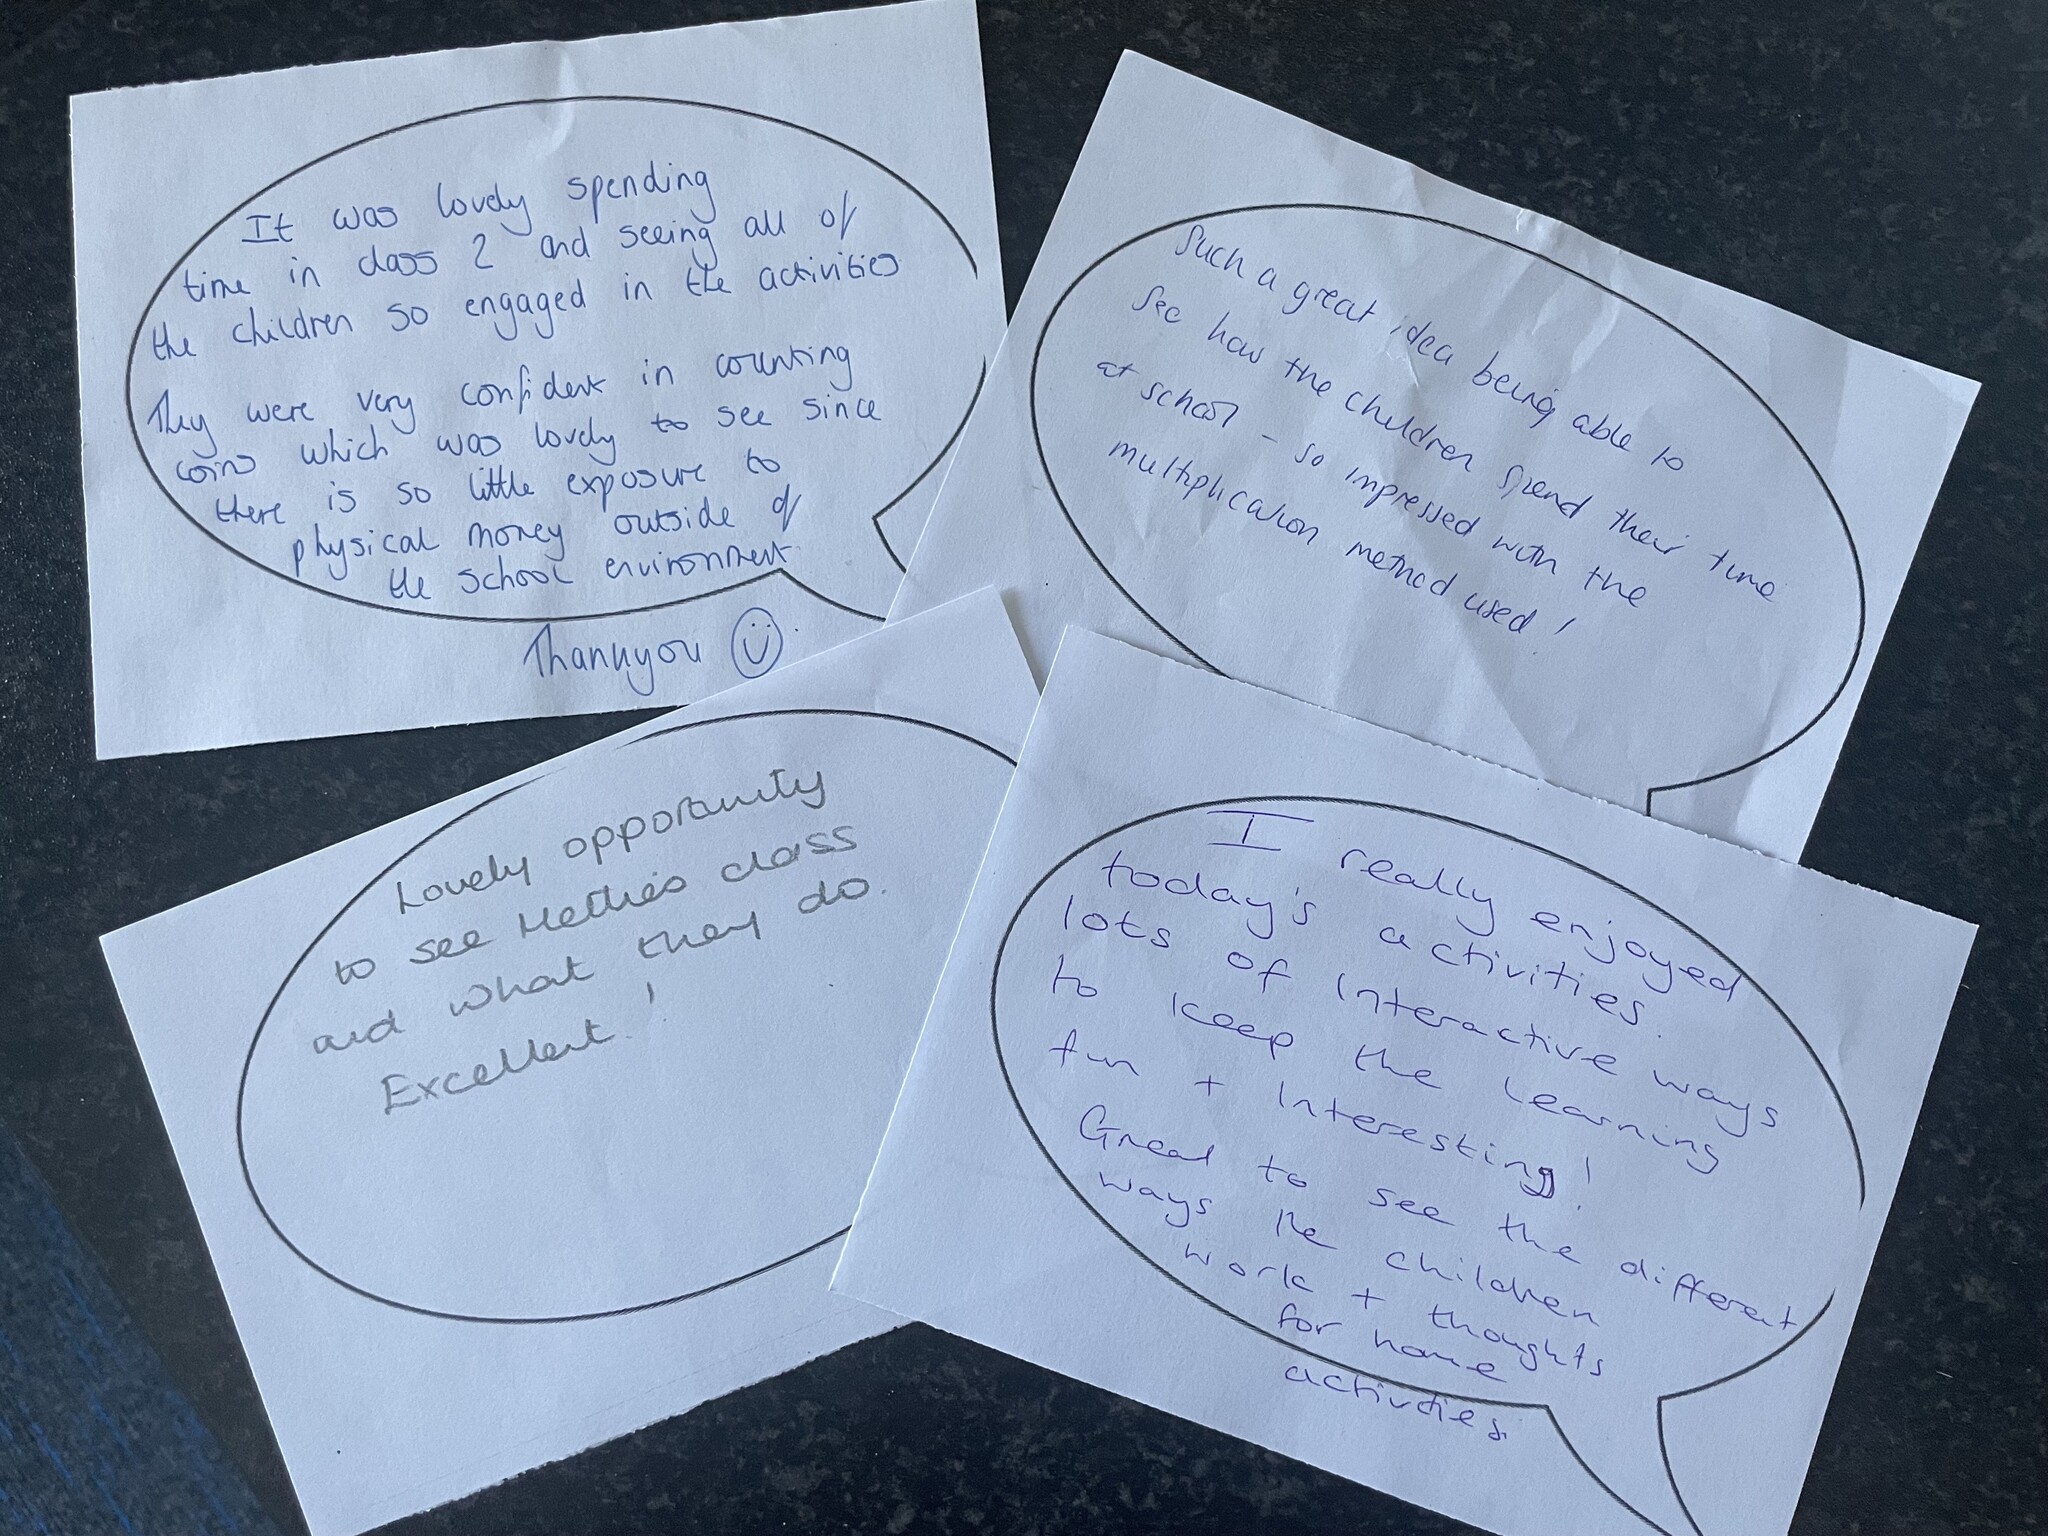 It was lovely spending
time in class 2 and seeing all of
the children so engaged in the activities
They were very confident in counting
coins which was lovely to see since
there is so little exposure to
physical money outside of
the school environment.
Thankyou
Such a great idea being able to
see how the children spend their time
at school - so impressed with the
multiplication method used!
Lovely opportunity
to see Hettie's class
and what they do.
Excellent!
I really enjoyed
today's activities.
lots of interactive ways
to keep the learning
fun + interesting!
Great to see the different
ways the children
work + thoughts
for home
activities.